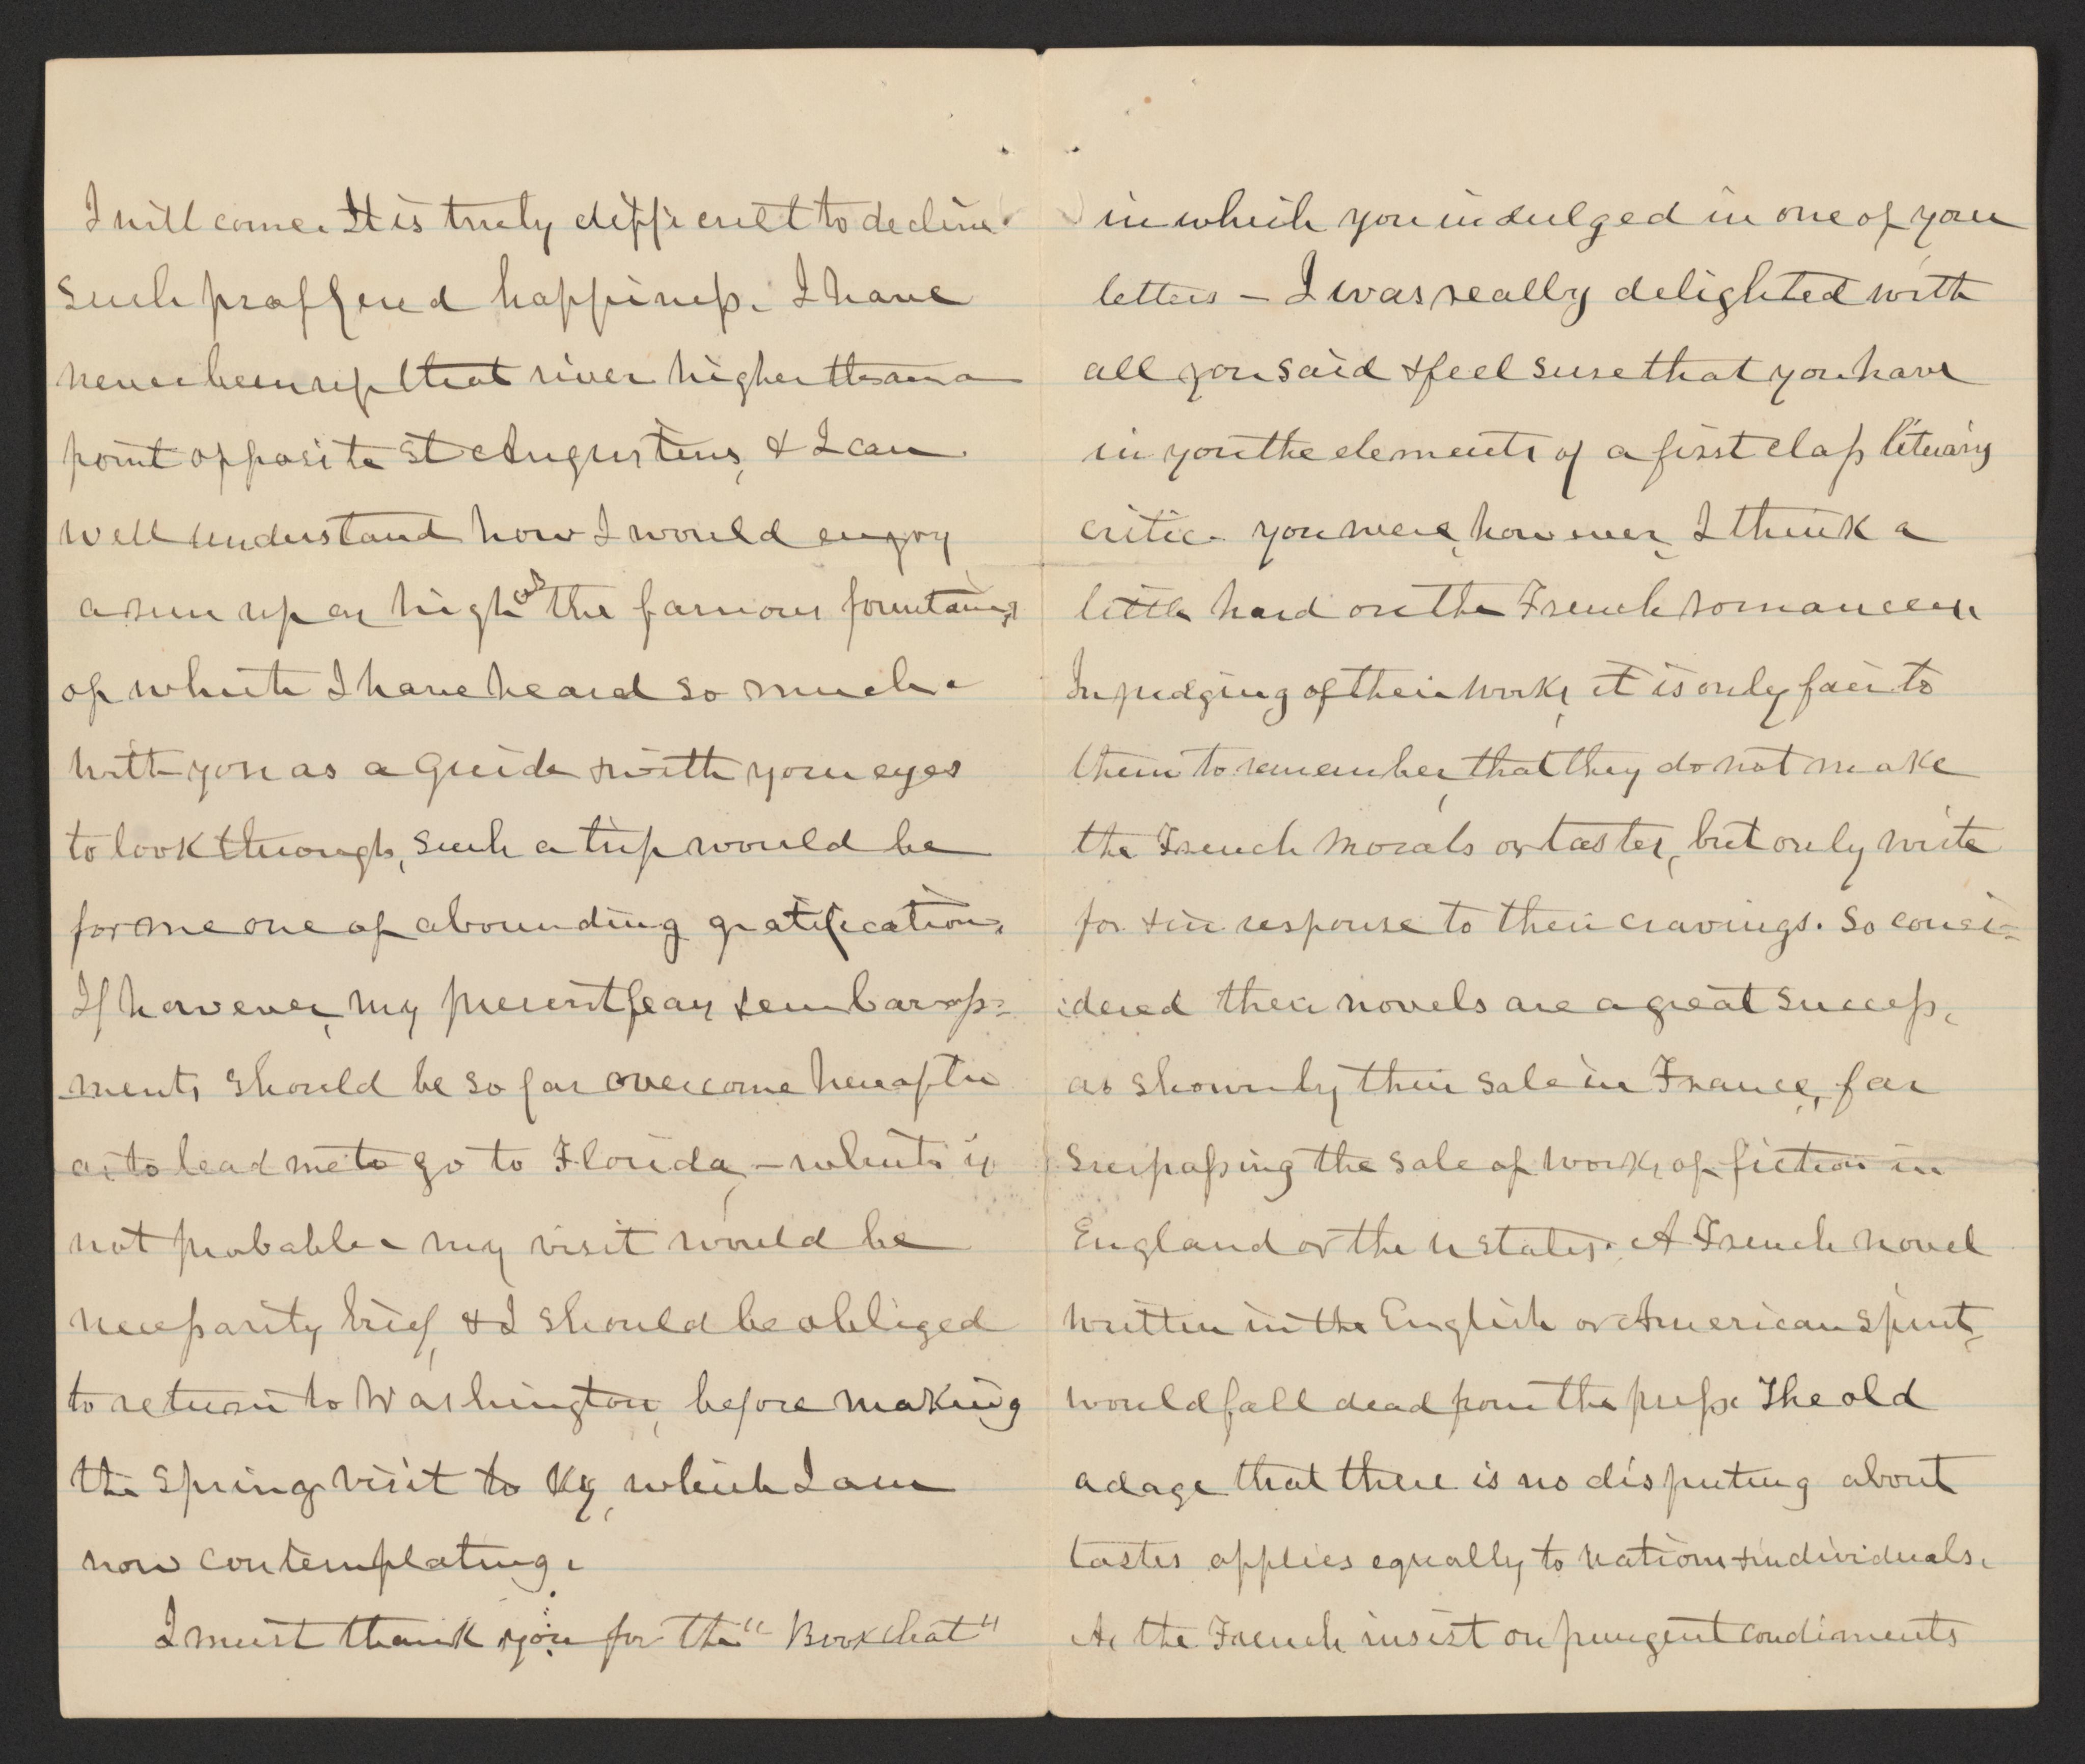 I will come. It is truly difficult to decline
such proffered happiness. I have
never been up that river higher than a
point opposite St Augustine, & I can
well understand how I would enjoy
a run up as high as the famous fountains
of which I have heard so much.
With you as a guide & with your eyes
to look through, such a trip would be
for me one of abounding gratification.
If however, my present fears & embarrass=
ments should be so far overcome hereafter
as to lead me to go to Florida, – which is
not probable – my visit would be
necessarily brief, & I should be obliged
to return to Washington, before making
the Spring visit to Ky, which I am
now contemplating.
I must thank you for the "Book chat"
in which you indulged in one of your
letters – I was really delighted with
all you said & feel sure that you have
in you the elements of a first class literary
critic. You were, however, I think a
little hard on the French romancers
In judging of their works, it is only fair to
them to remember, that they do not make
the French morals or tastes, but only write
for & in response to their cravings. So consi=
dered their novels are a great success,
as shown by their sale in France, far
surpassing the sale of works of fiction in
England or the U States. A French novel
written in the English or American spirit,
would fall dead from the press. The old
adage that there is no disputing about
tastes applies equally to nations & individuals.
As the French insist on pungent condiments